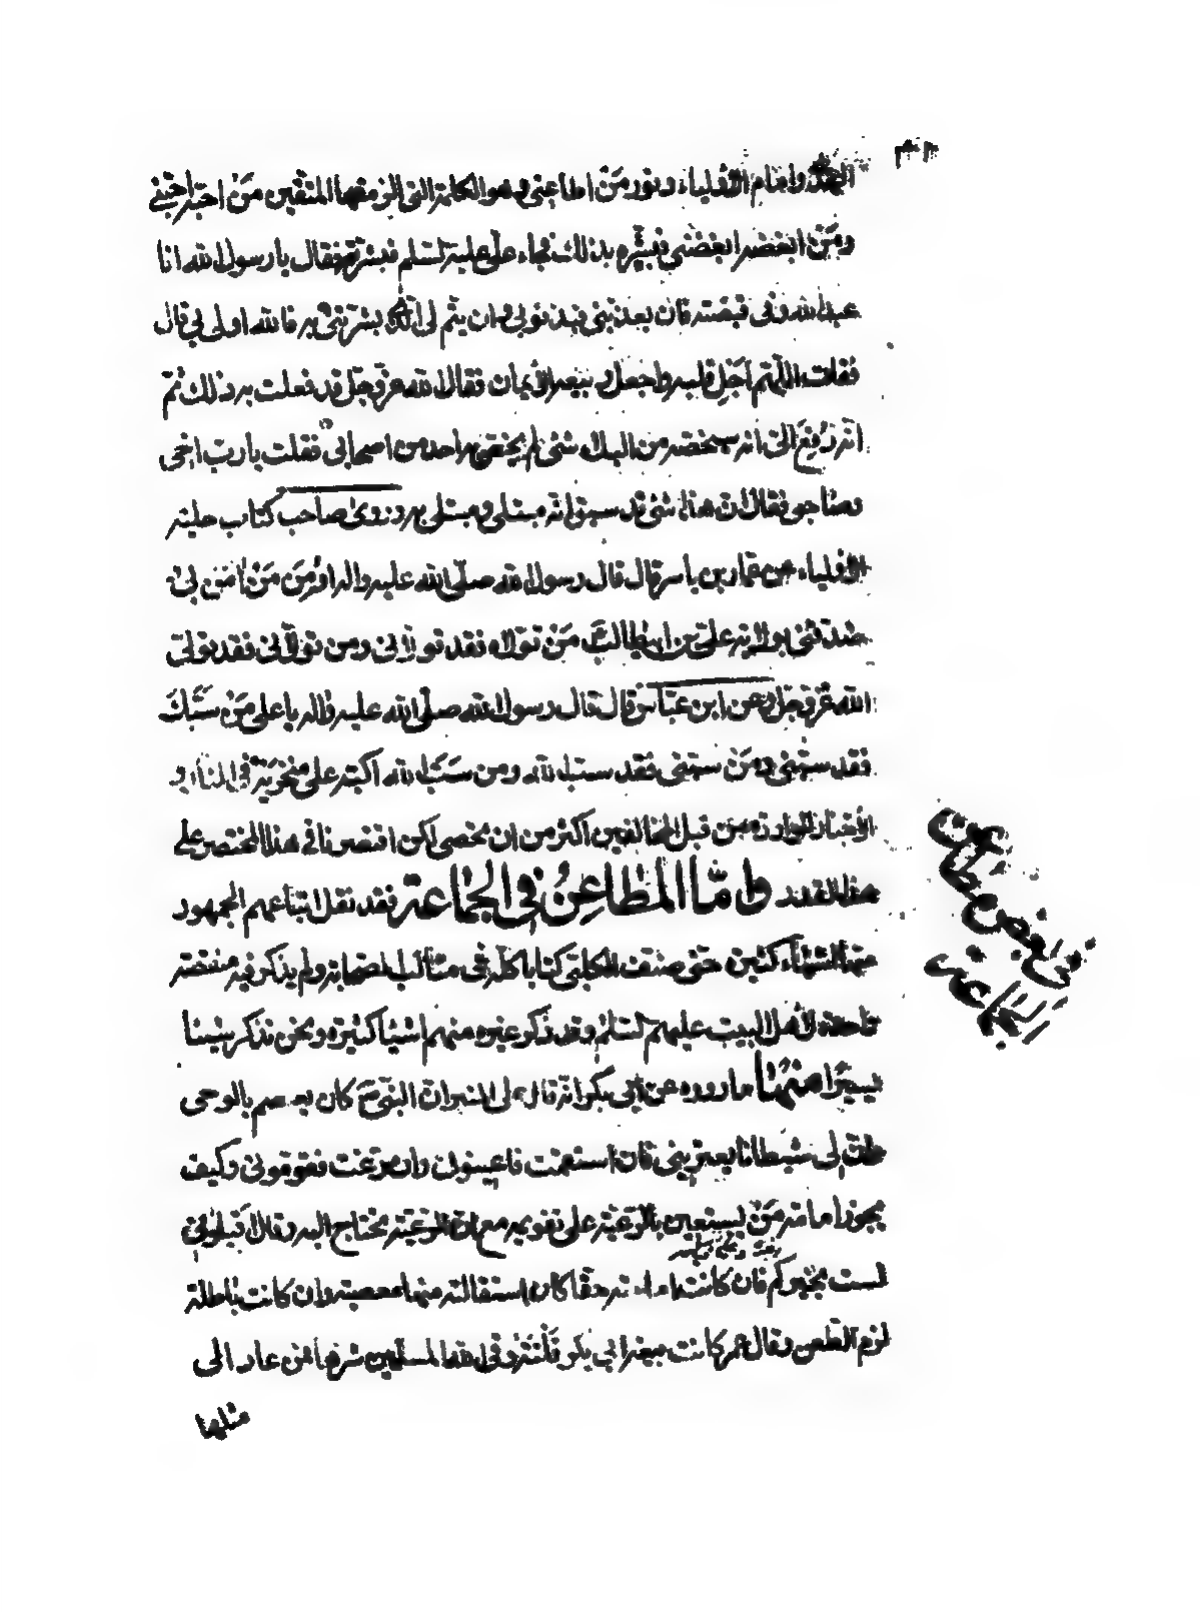 الهدى وامام الاولياء ونور من اطاعني وهو الكلمة التي الزمتها المتقين مَنْ احبّه احبّني
ومَنْ ابغضه ابغضني فبشّره بذلك فجاء عليّ عليه السّلم فبشرته فقال يا رسول الله انا
عبد الله وفي قبضته فان يعذبني فبذنوبي وان يتم لي الّذي بشرتني به فالله اولى بي قال
فقلت اللهّم اَجْلِ قلبه واجعل ربيعه الايمان فقال الله عزّ وجلّ قد فعلت به ذلك ثمّ
انّه رُفِعَ اليّ انه سيخصّه من البلاء بشئ لم يخصّ به احد من اصحابي فقلت يا ربّ اخي
وصاحبي فقال انّ هذا شئ قد سبق انّه مبتلى ومبتلى به وروى صاحب كتاب حلية
الاولياء عن عمار بن ياسر قال قال رسول الله صلّى الله عليه واله اوصي مَنْ امن بي
وصدقني بولاية عليّ بن ابيطالب مَنْ تولاه فقد تولاني ومن تولاني فقد تولّى
الله عزّ وجلّ وعن ابن عبّاس قال قال رسول الله صلّى الله عليه واله يا علي مَنْ سَبَّكَ
فقد سبّني ومَنْ سبّني فقد سبّ الله ومن سَبَّ الله اكبّه على منخريه في النار و
الاخبار الواردة من قبل المخالفين اكثر من ان تحصى لكن اقتصرنا في هذا المختصر على
هذا القدر وامّا المطاعِنُ في الجماعة فقد نقل اتباعهم الجمهور
منها اشياء كثيرة حتى صنّف الكلبي كتابا كلّه في مثالب الصحابة ولم يذكر فيه منقصة
واحدة لاهل البيت عليهم السّلم وقد ذكر غيره منهم اشياء كثيرة ونحن نذكر شيئا
يسيرًا منها ما رووه عن ابي بكر انّه قال على المنبر انّ النبّي ص كان يعصم بالوحي
وانّ لي شيطانا يعتريني فان استقمت فاعينوني وان زغت فقوموني وكيف
يجوز امامة مَنْ يستعين بالرّعيّة على تقويمه مع انّ الرّعيّة تحتاج اليه وقال اقيلوني
لست بخيركم فان كانت امامته حقا كان استقالته منها معصية وان كانت باطلة
لزم الطّعن وقال عمر كانت بيعة ابي بكر فَلْتَة وقى الله المسلمين شرها فمن عاد الى
مثلها
في بعض مطاعن
الجماعة